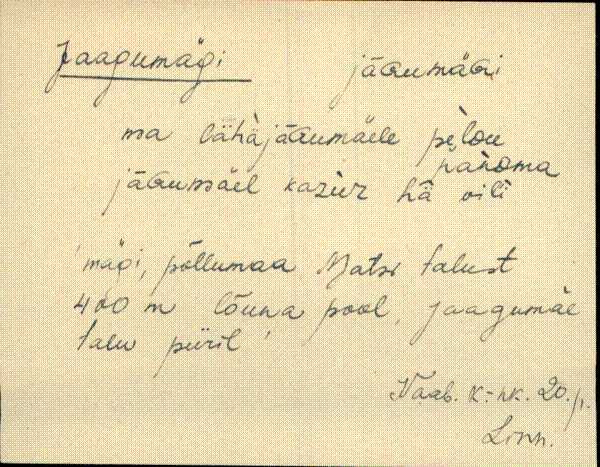 Jaagumägi jäɢumäɢi
ma lähä jäɢumäele pèlou
nähoma
jäɢumäel kaziuz hä vili
'mägi, põllumaa Matsi talust
400 m lõuna pool, Jaagumäe
talu piiril'
Vaab. k-nk. 20.
Linn.